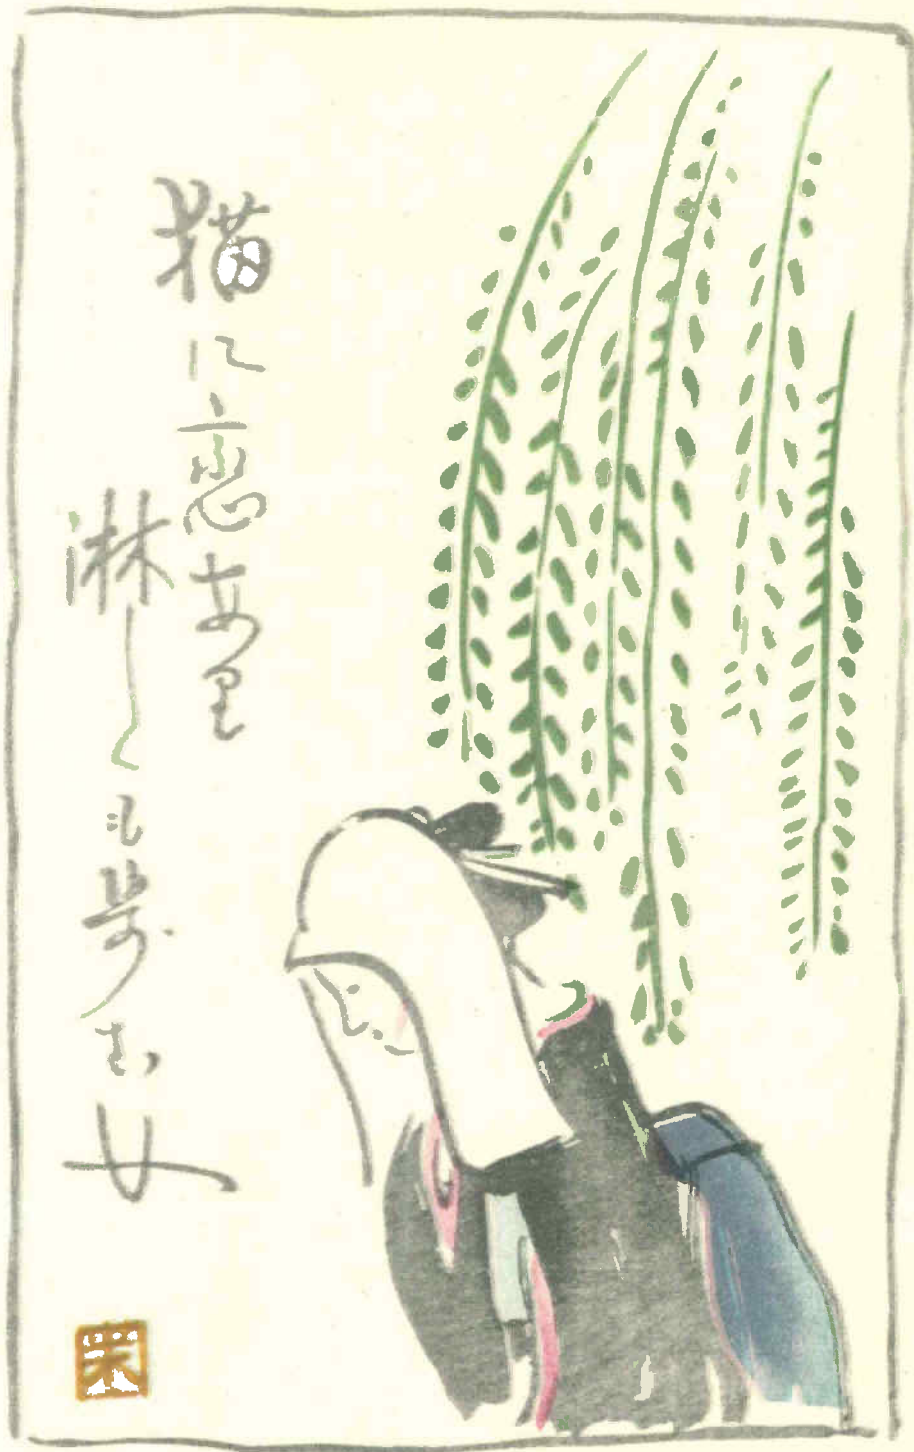 猫に恋あり
淋しくも歩む女